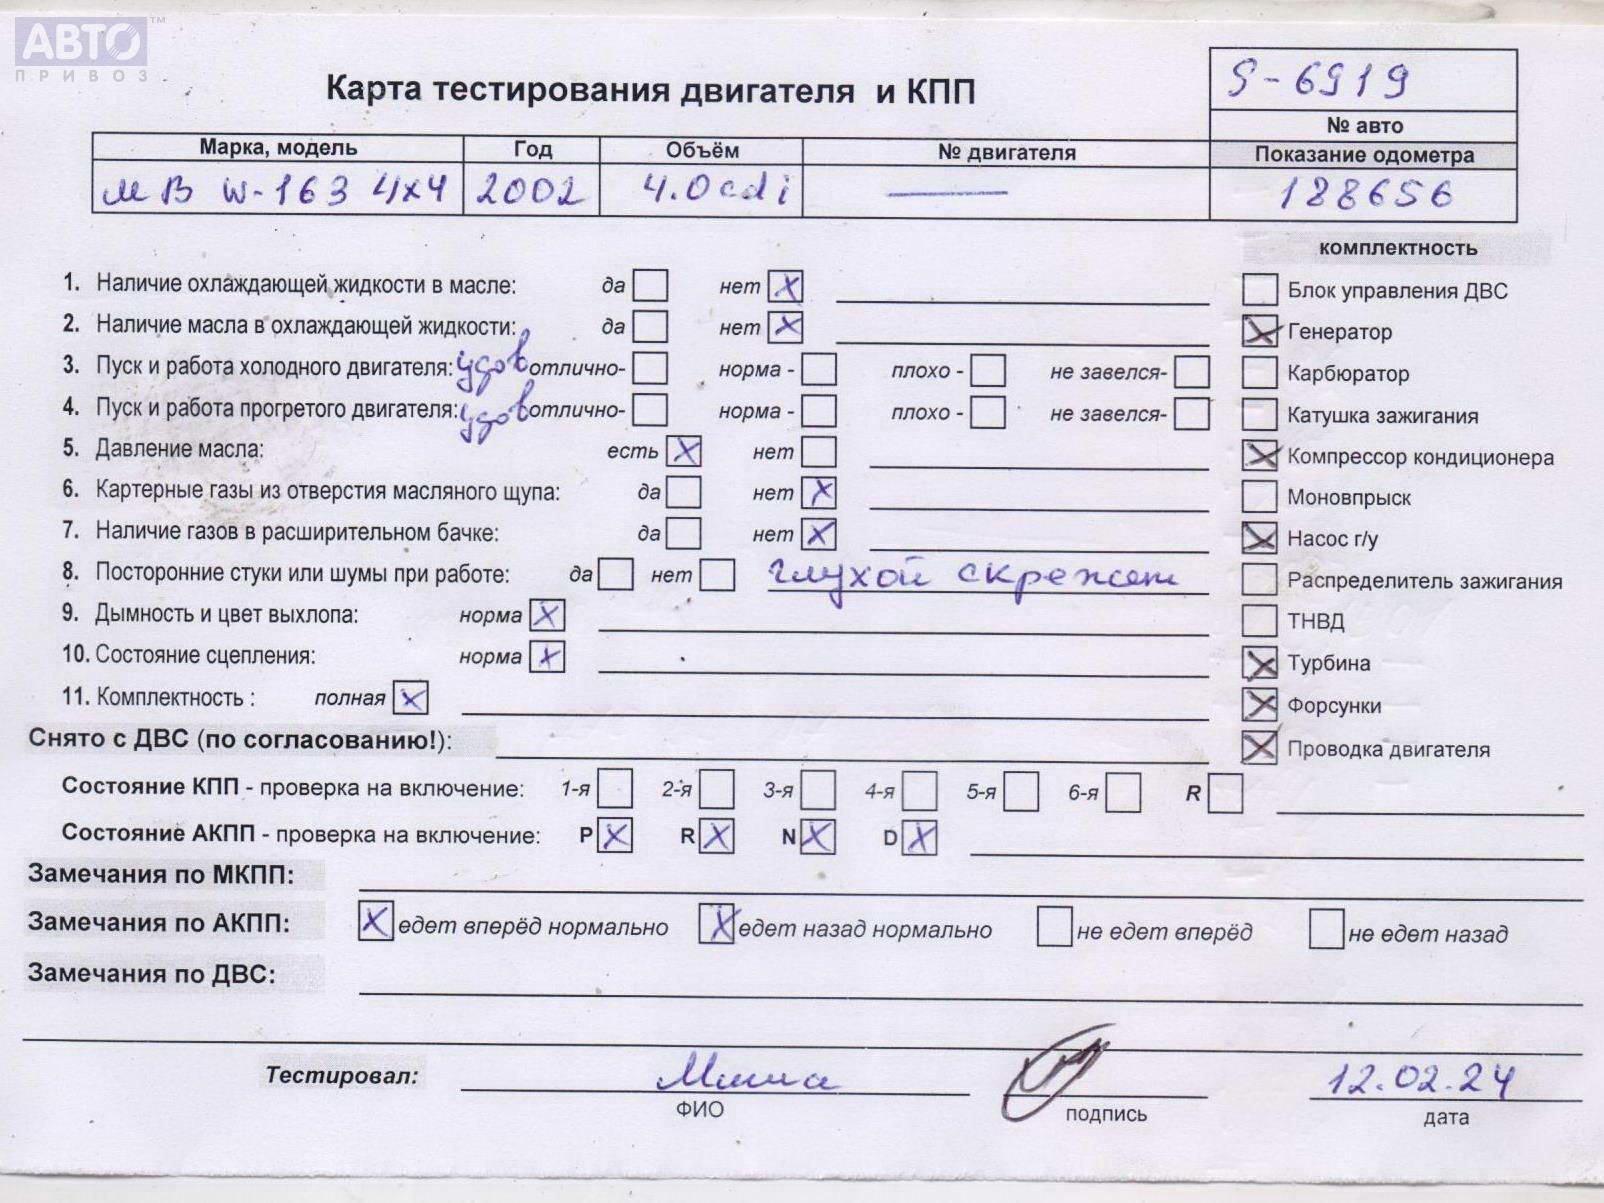 АВТО™
ПРИВОЗ
Карта тестирования двигателя и КПП
S-6919
№ авто
Марка, модель Год Объём № двигателя Показание одометра
МВ W-163 4x4 2002 4.0cdi — 188656
комплектность
1. Наличие охлаждающей жидкости в масле: да нет X
Блок управления ДВС
2. Наличие масла в охлаждающей жидкости: да нет X
X Генератор
3. Пуск и работа холодного двигателя: удов отлично- норма - плохо - не завелся-
Карбюратор
4. Пуск и работа прогретого двигателя: удов отлично- норма - плохо - не завелся-
Катушка зажигания
5. Давление масла: есть X нет
X Компрессор кондиционера
6. Картерные газы из отверстия масляного щупа: да нет X
Моновпрыск
7. Наличие газов в расширительном бачке: да нет X
X Насос г/у
8. Посторонние стуки или шумы при работе: да нет глухой скрежет
Распределитель зажигания
9. Дымность и цвет выхлопа: норма X
ТНВД
10. Состояние сцепления: норма X
X Турбина
11. Комплектность : полная X
X Форсунки
Снято с ДВС (по согласованию!):
X Проводка двигателя
Состояние КПП - проверка на включение: 1-я 2-я 3-я 4-я 5-я 6-я R
Состояние АКПП - проверка на включение: P X R X N X D X
Замечания по МКПП:
Замечания по АКПП: X едет вперёд нормально X едет назад нормально не едет вперёд не едет назад
Замечания по ДВС:
Тестировал: Миша 12.02.24
ФИО подпись дата